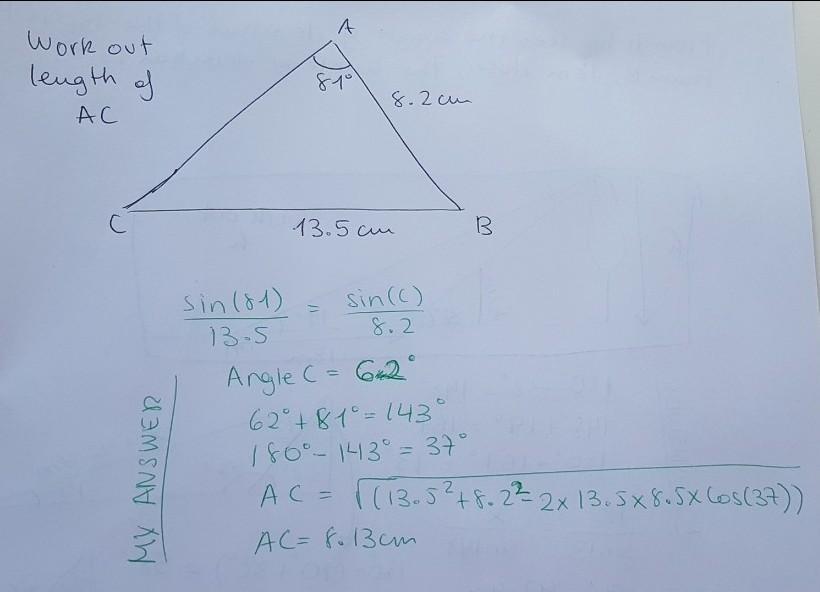 Work out
length of
AC
A
81°
8.2 cm
C
13.5 cm
B
sin(81)/13.5 = sin(C)/8.2
Angle C = 62°
62° + 81° = 143°
180° - 143° = 37°
AC = √((13.5² + 8.2² - 2 x 13.5 x 8.5 x Cos(37))
AC = 8.13cm
MY ANSWER